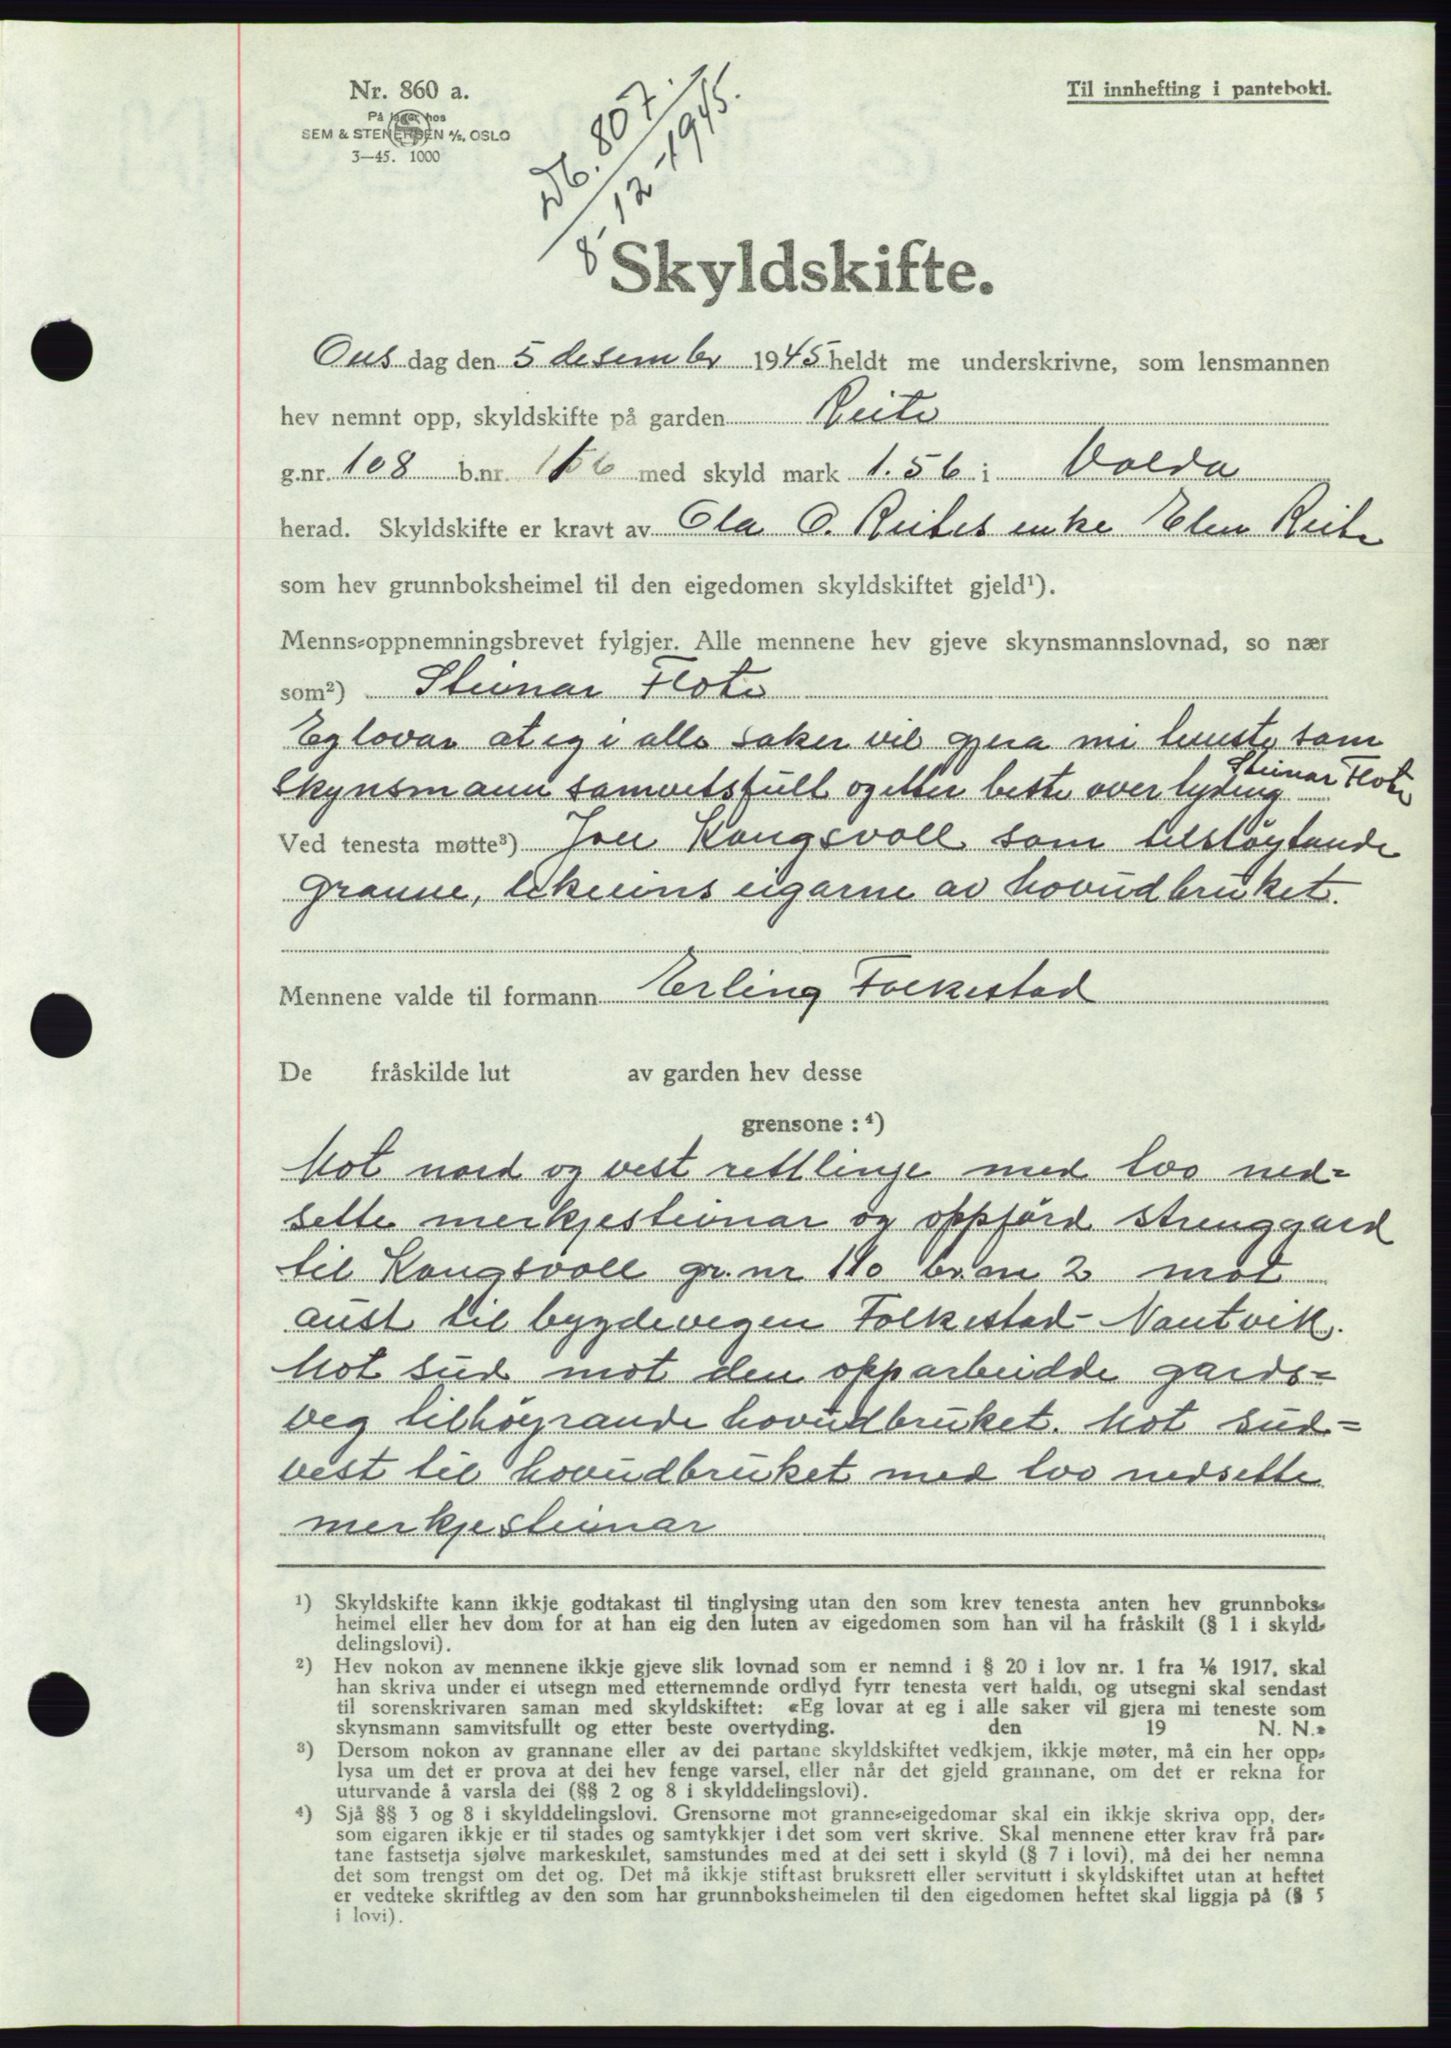 Nr. 860 a.
På lager hos
SEM & STENERSEN A/S, OSLO
3—45. 1000
Til innhefting i panteboki.
Db. 807
8/12-1945.
Skyldskifte.
Ons dag den 5 desember 1945 heldt me underskrivne, som lensmannen
hev nemnt opp, skyldskifte på garden Reite
g.nr. 108 b.nr. med skyld mark 1.56 i Volda
herad. Skyldskifte er kravt av Ola O. Reites enke Elen Reite
som hev grunnboksheimel til den eigedomen skyldskiftet gjeld¹).
Menns-oppnemningsbrevet fylgjer. Alle mennene hev gjeve skynsmannslovnad, so nær
som²) Steinar Flote
Eg lovar at eg i alle saker vil gjera mi teneste som
skynsmann samvitsfullt og etter beste overtyding Steinar Flote
Ved tenesta møtte³) Joen Kongsvoll som tilstøytande
granne, likeeins eigarne av hovudbruket.
Mennene valde til formann Erling Folkestad
De fråskilde lut av garden hev desse
grensone: ⁴)
Mot nord og vest rettlinje med tvo ned=
sette merkjesteinar og oppförd strenggard
til Kongsvoll gr.nr 110 br.nr 2 mot
aust til bygdevegen Folkestad - Nautvik.
Mot sud mot den opparbeidde gards=
veg tilhöyrande hovudbruket. Mot sud=
vest til hovudbruket med tvo nedsette
merkjesteinar
¹) Skyldskifte kann ikkje godtakast til tinglysing utan den som krev tenesta anten hev grunnboks-
heimel eller hev dom for at han eig den luten av eigedomen som han vil ha fråskilt (§ 1 i skyld-
delingslovi).
²) Hev nokon av mennene ikkje gjeve slik lovnad som er nemnd i § 20 i lov nr. 1 fra 1/6 1917, skal
han skriva under ei utsegn med etternemnde ordlyd fyrr tenesta vert haldi, og utsegni skal sendast
til sorenskrivaren saman med skyldskiftet: «Eg lovar at eg i alle saker vil gjera mi teneste som
skynsmann samvitsfullt og etter beste overtyding. den 19 N. N.»
³) Dersom nokon av grannane eller av dei partane skyldskiftet vedkjem, ikkje møter, må ein her opp-
lysa um det er prova at dei hev fenge varsel, eller når det gjeld grannane, om det er rekna for
uturvande å varsla dei (§§ 2 og 8 i skylddelingslovi).
⁴) Sjå §§ 3 og 8 i skylddelingslovi. Grensorne mot granne-eigedomar skal ein ikkje skriva opp, der-
som eigaren ikkje er til stades og samtykkjer i det som vert skrive. Skal mennene etter krav frå par-
tane fastsetja sjølve markeskilet, samstundes med at dei sett i skyld (§ 7 i lovi), må dei her nemna
det som trengst om det og. Det må ikkje stiftast bruksrett eller servitutt i skyldskiftet utan at heftet
er vedteke skriftleg av den som har grunnboksheimelen til den eigedomen heftet skal liggja på (§ 5
i lovi).